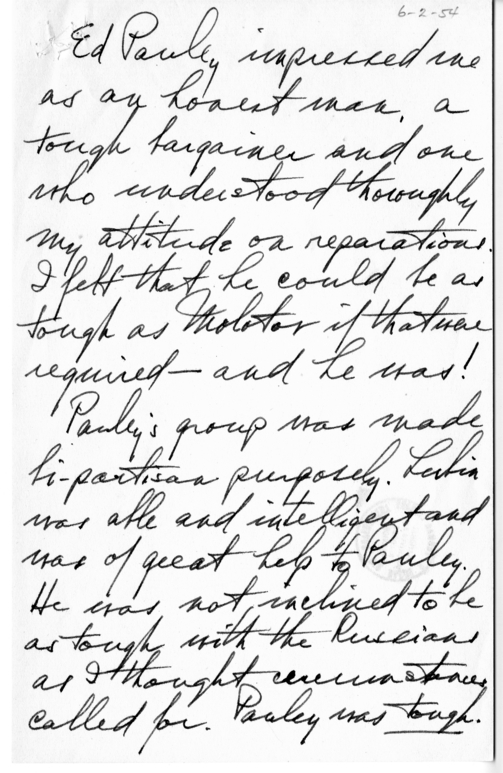 6-2-54
Ed Pauley impressed me
as an honest man, a
tough bargainer and one
who understood thoroughly
my attitude on reparations.
I felt that he could be as
tough as Molotov if that were
required — and he was!
Pauley's group was made
bi-partisan purposely. Lubin
was able and intelligent and
was of great help to Pauley.
He was not inclined to be
as tough with the Russians
as I thought circumstances
called for. Pauley was tough.